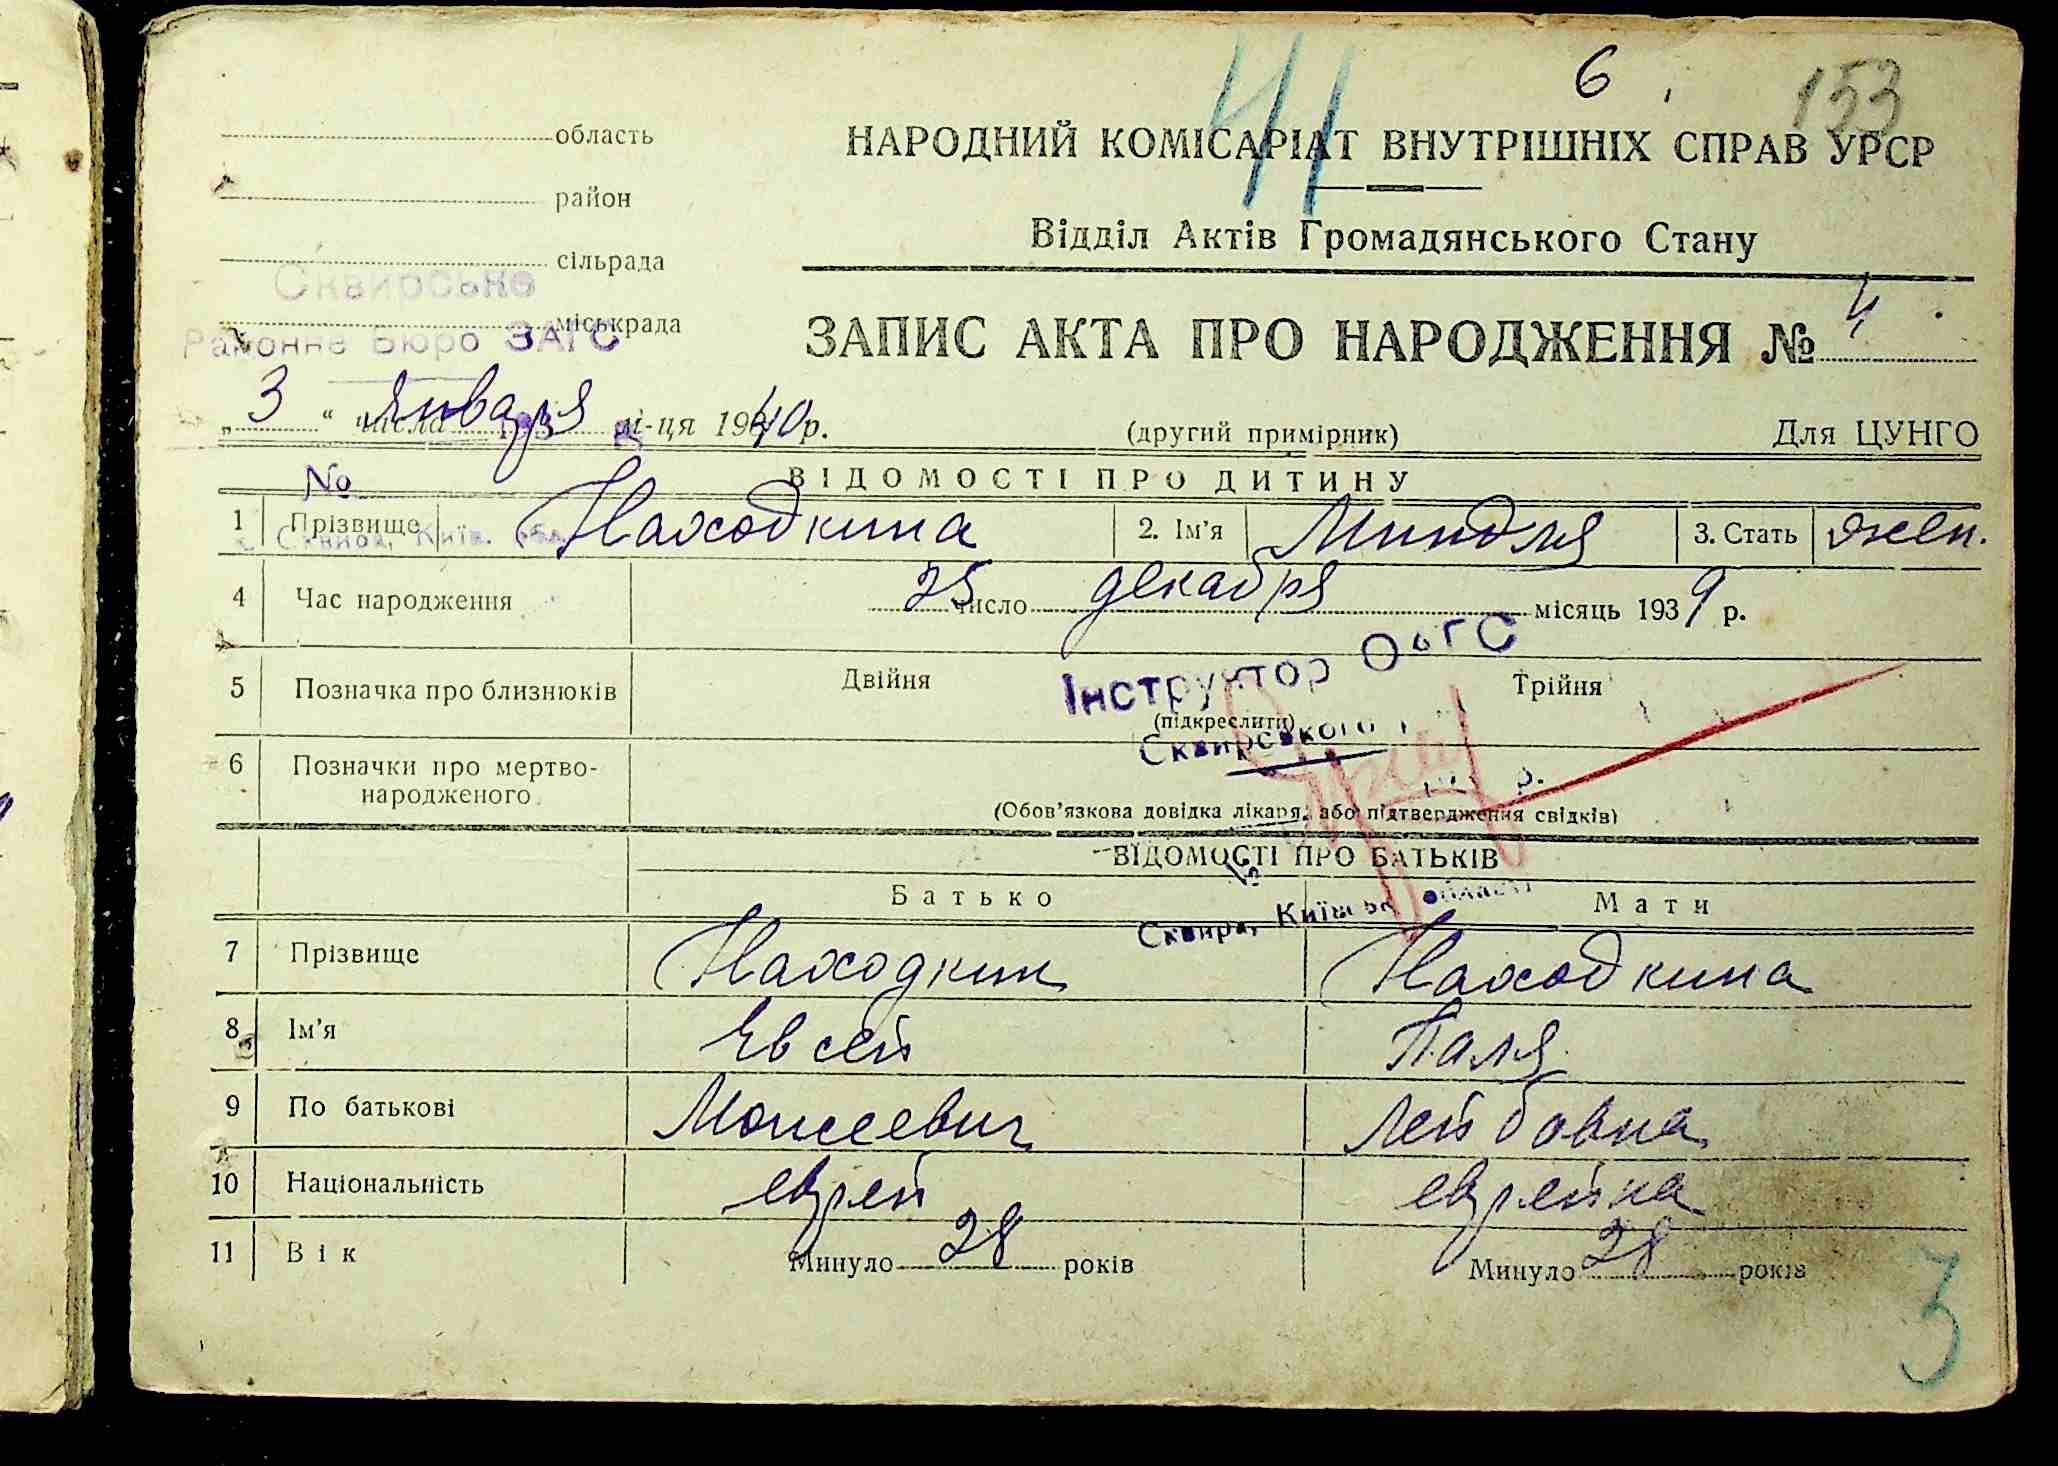 41
6
153
область
район
сільрада
міськрада
Сквирське
Районне Бюро ЗАГС
НАРОДНИЙ КОМІСАРІАТ ВНУТРІШНІХ СПРАВ УРСР
Відділ Актів Громадянського Стану
ЗАПИС АКТА ПРО НАРОДЖЕННЯ № 4
„ 3 “ числа января м-ця 1940 р.
(другий примірник)
Для ЦУНГО
№
ВІДОМОСТІ ПРО ДИТИНУ
1 Прізвище Находкина 2. Ім'я Миндля 3. Стать жен.
Сквира, Київ. обл.
4 Час народження 25 число декабря місяць 1939 р.
5 Позначка про близнюків Двійня Трійня
(підкреслити)
Інструктор
Сквирського
6 Позначки про мертво-
народженого
(Обов'язкова довідка лікаря, або підтвердження свідків)
ВІДОМОСТІ ПРО БАТЬКІВ
Батько Мати
Сквира, Київськ області
7 Прізвище Находкин Находкина
8 Ім'я Евсей Паля
9 По батькові Моисеевич Лейбовна
10 Національність еврей еврейка
11 Вік Минуло 28 років Минуло 28 років
3